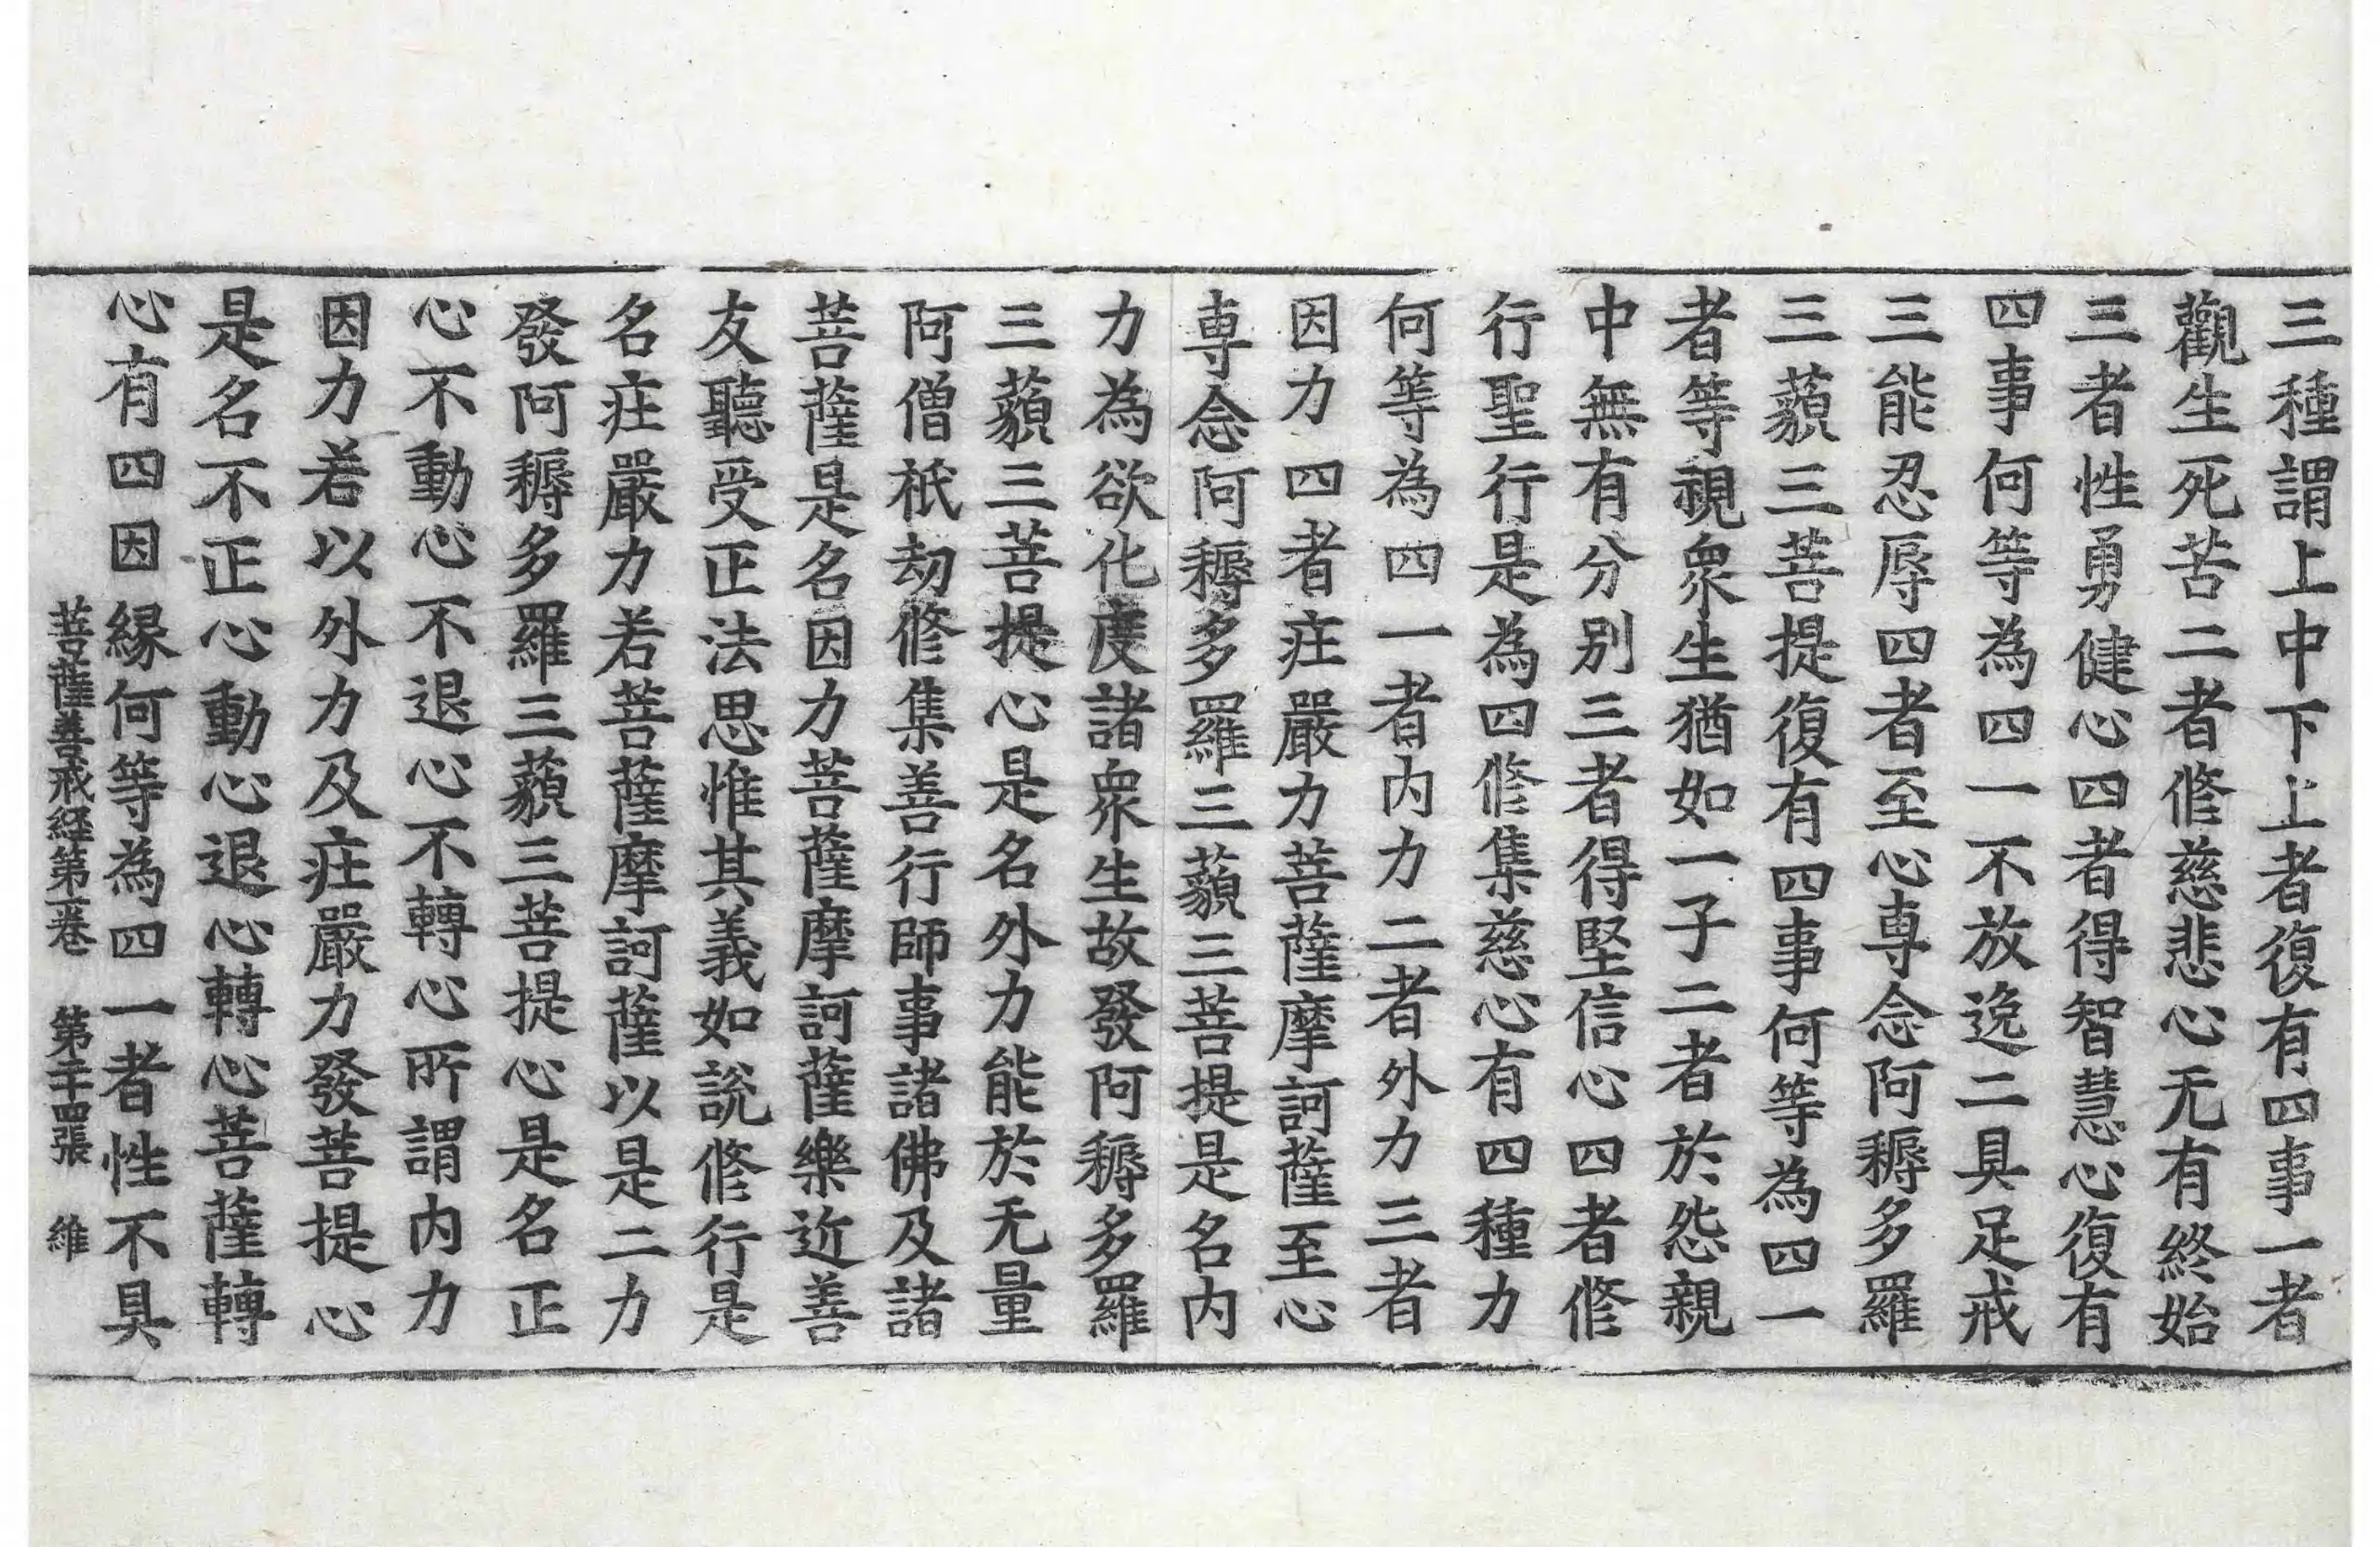 三種謂上中下上者復有四事一者
觀生死苦二者俻慈悲心无有終始
三者性勇健心四者得智慧心復有
四事何等為四一不放逸二具足戒
三能忍辱四者至心専念阿耨多羅
三藐三菩提復有四事何等為四一
者等視衆生猶如一子二者於怨親
中無有分別三者得堅信心四者俻
行聖行是為四俻集慈心有四種力
何等為四一者內力二者外力三者
因力四者庄嚴力菩薩摩訶薩至心
専念阿耨多羅三藐三菩提是名內
力為欲化度諸衆生故發阿耨多羅
三藐三菩提心是名外力能於无量
阿僧祇劫俻集善行師事諸佛及諸
菩薩是名因力菩薩摩訶薩樂近善
友聽受正法思惟其義如說俻行是
名庄嚴力若菩薩摩訶薩以是二力
發阿耨多羅三藐三菩提心是名正
心不動心不退心不轉心所謂內力
因力若以外力及庄嚴力發菩提心
是名不正心動心退心轉心菩薩轉
心有四因緣何等為四一者性不具
菩薩善戒経第一卷 第二十四張 維